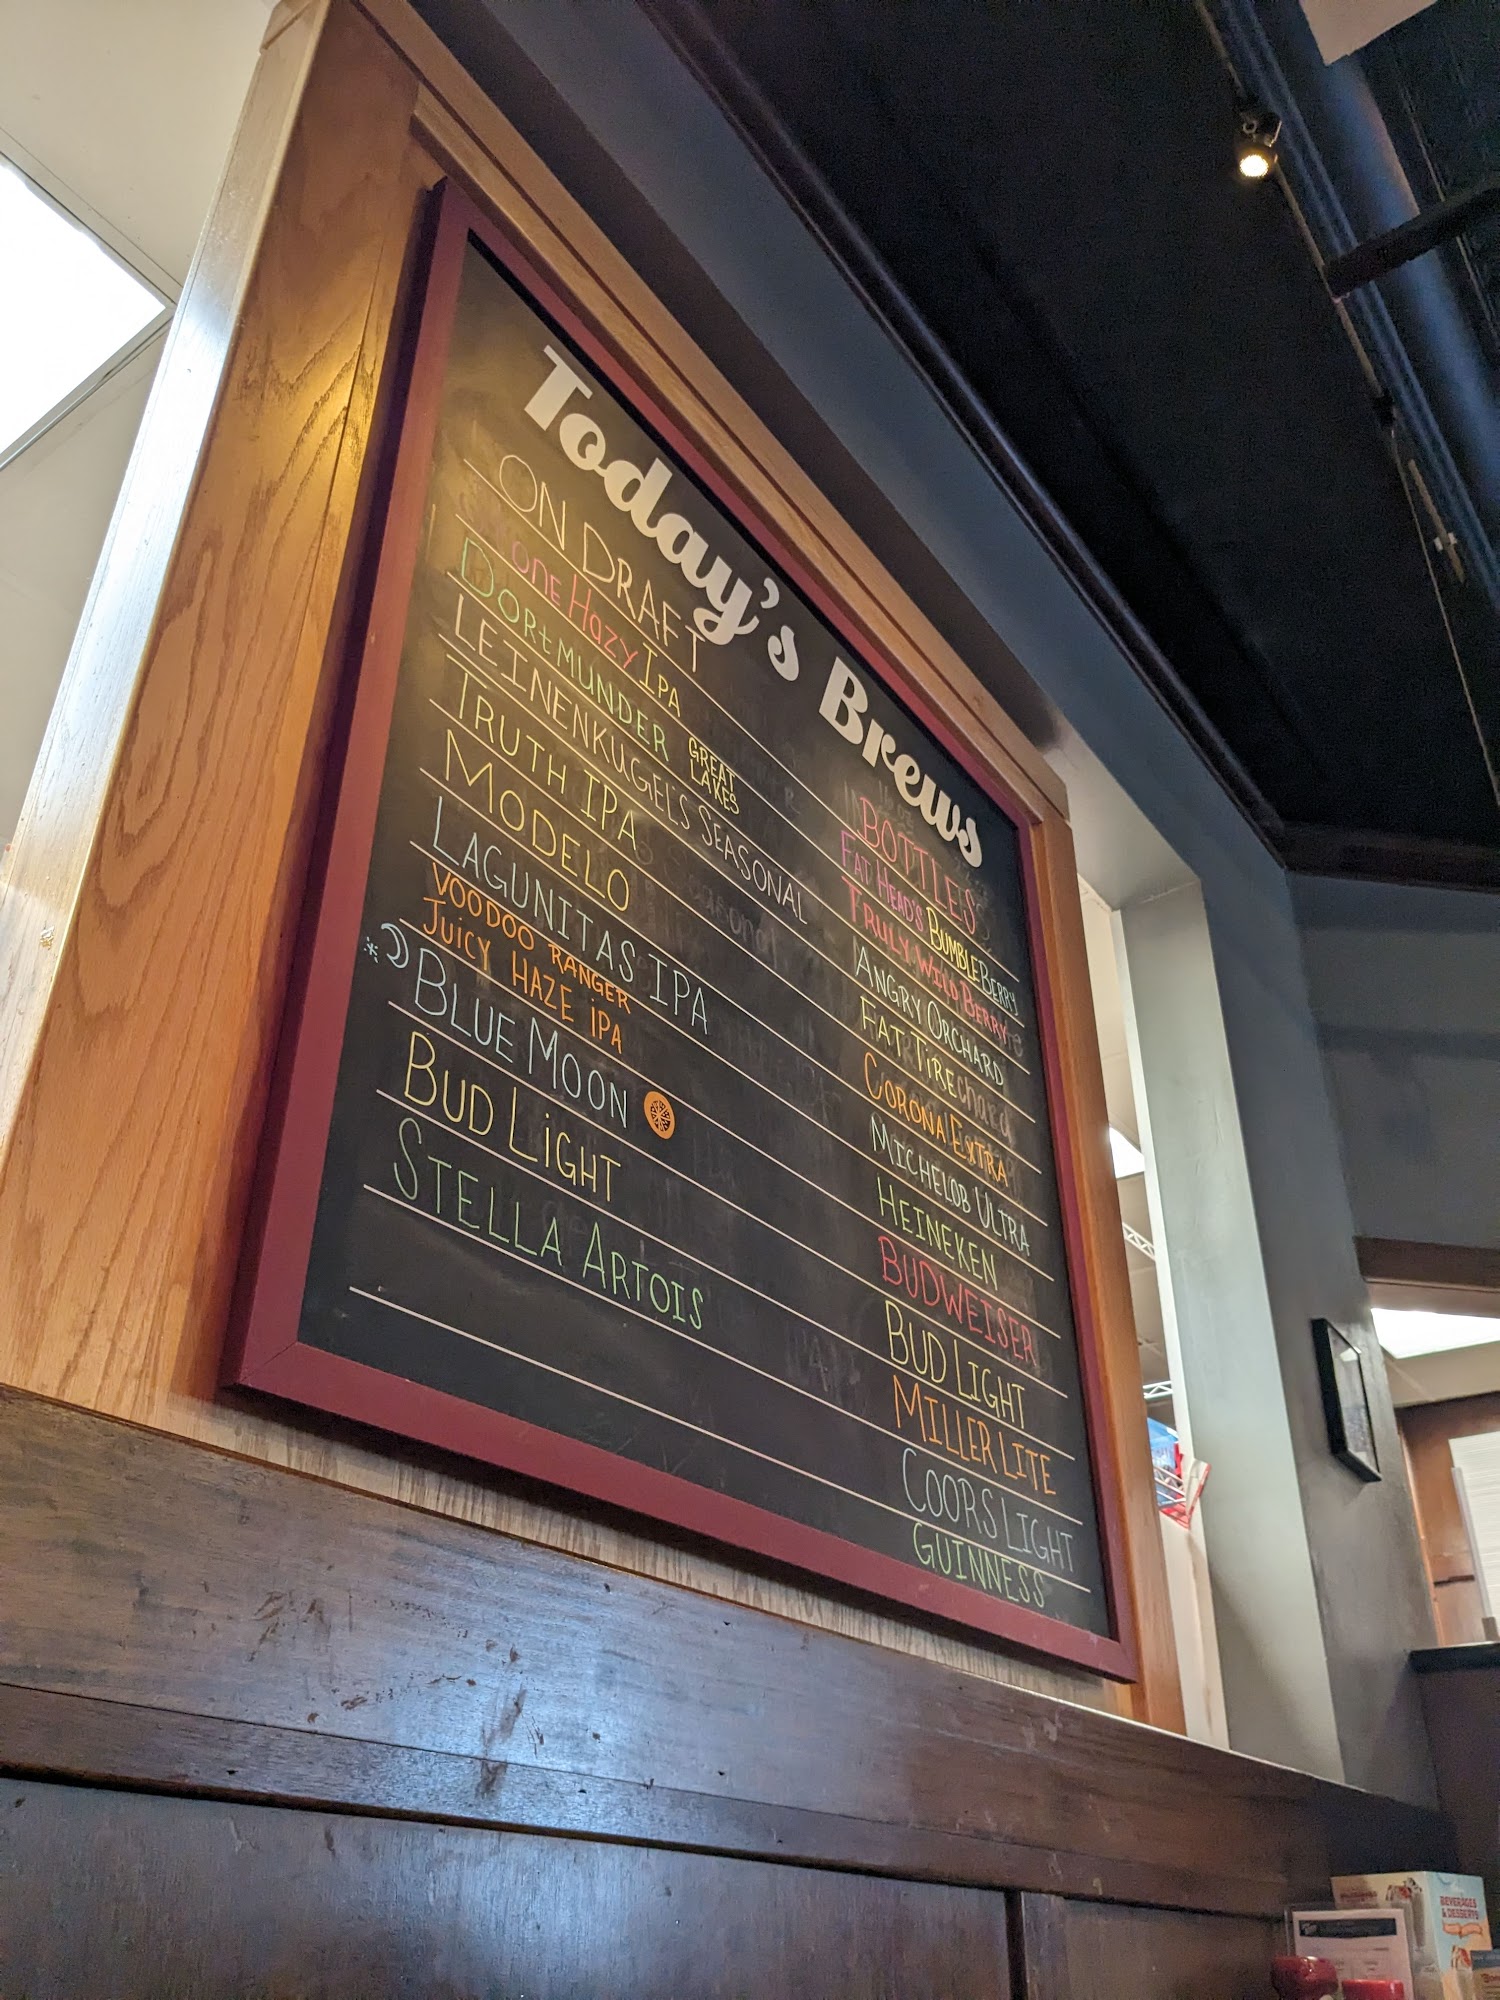 Today's Brews
ON DRAFT
ONE HAZY IPA
DORTMUNDER GREAT
LAKES
LEINENKUGEL'S SEASONAL
TRUTH IPA
MODELO
LAGUNITAS IPA
VOODOO RANGER
JUICY HAZE iPA
BLUE MOON
BUD LiGHT
STELLA ARTOIS
BOTTLES
FAT HEAD'S BUMBLEBERRY
TRULY WILD BERRY
ANGRY ORCHARD
FAT TIRE
CORONA EXTRA
MICHELOB ULTRA
HEINEKEN
BUDWEISER
BUD LIGHT
MILLER LITE
COORS LIGHT
GUINNESS
BEVERAGES
& DESSERTS